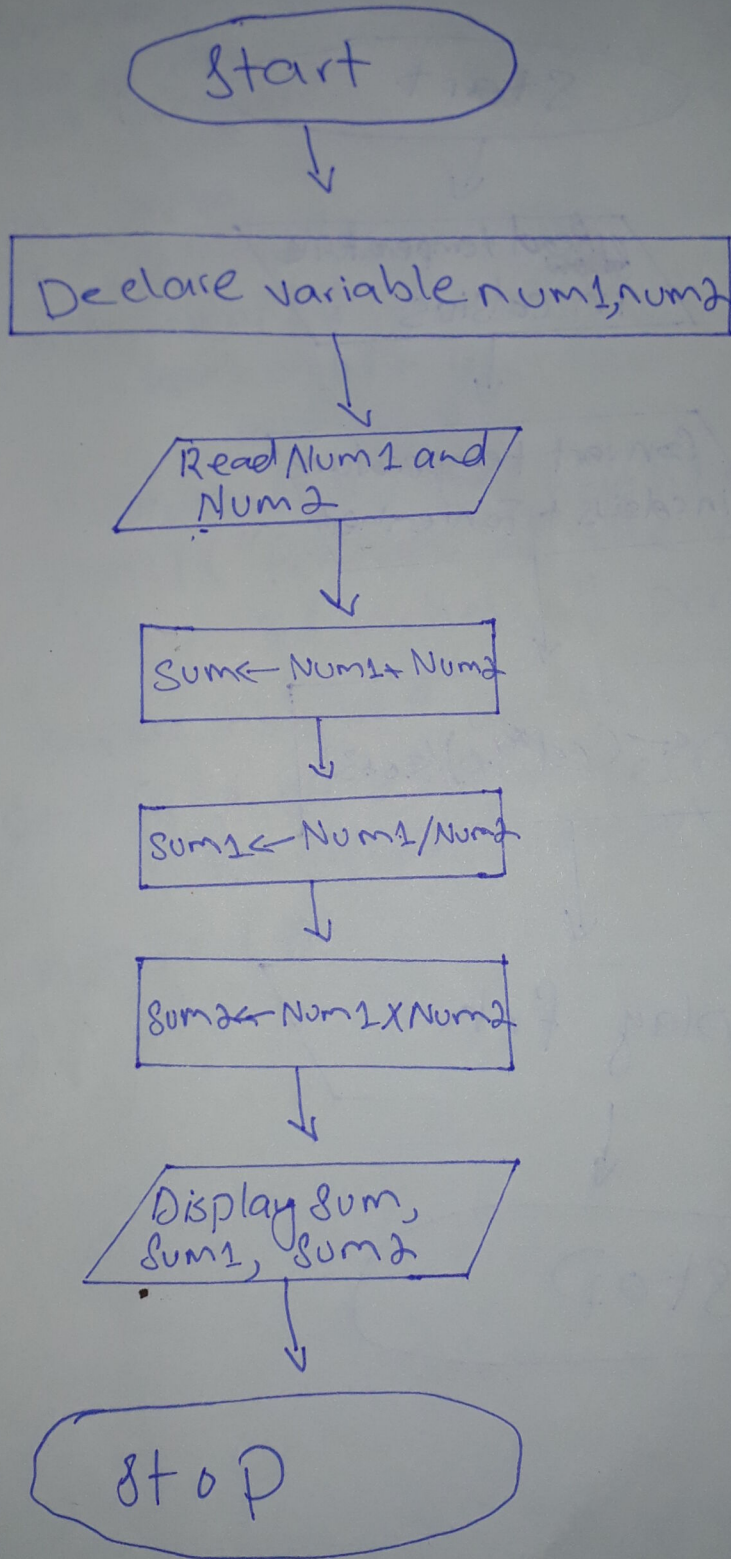 Start
Declare variable num1, num2
Read Num1 and
Num2
Sum ← Num1 + Num2
Sum1 ← Num1 / Num2
Sum2 ← Num1 X Num2
Display Sum,
Sum1, Sum2
Stop